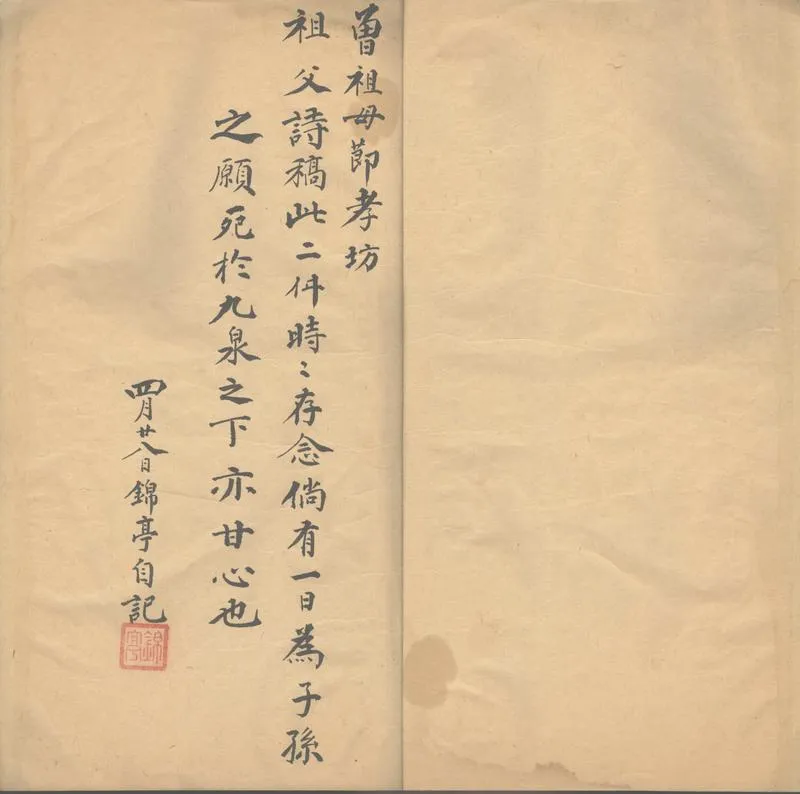 曾祖母節孝坊
祖父詩稿此二件時〻存念倘有一日為子孫
之願死於九泉之下亦甘心也
四月廿八日錦亭自記
錦亭